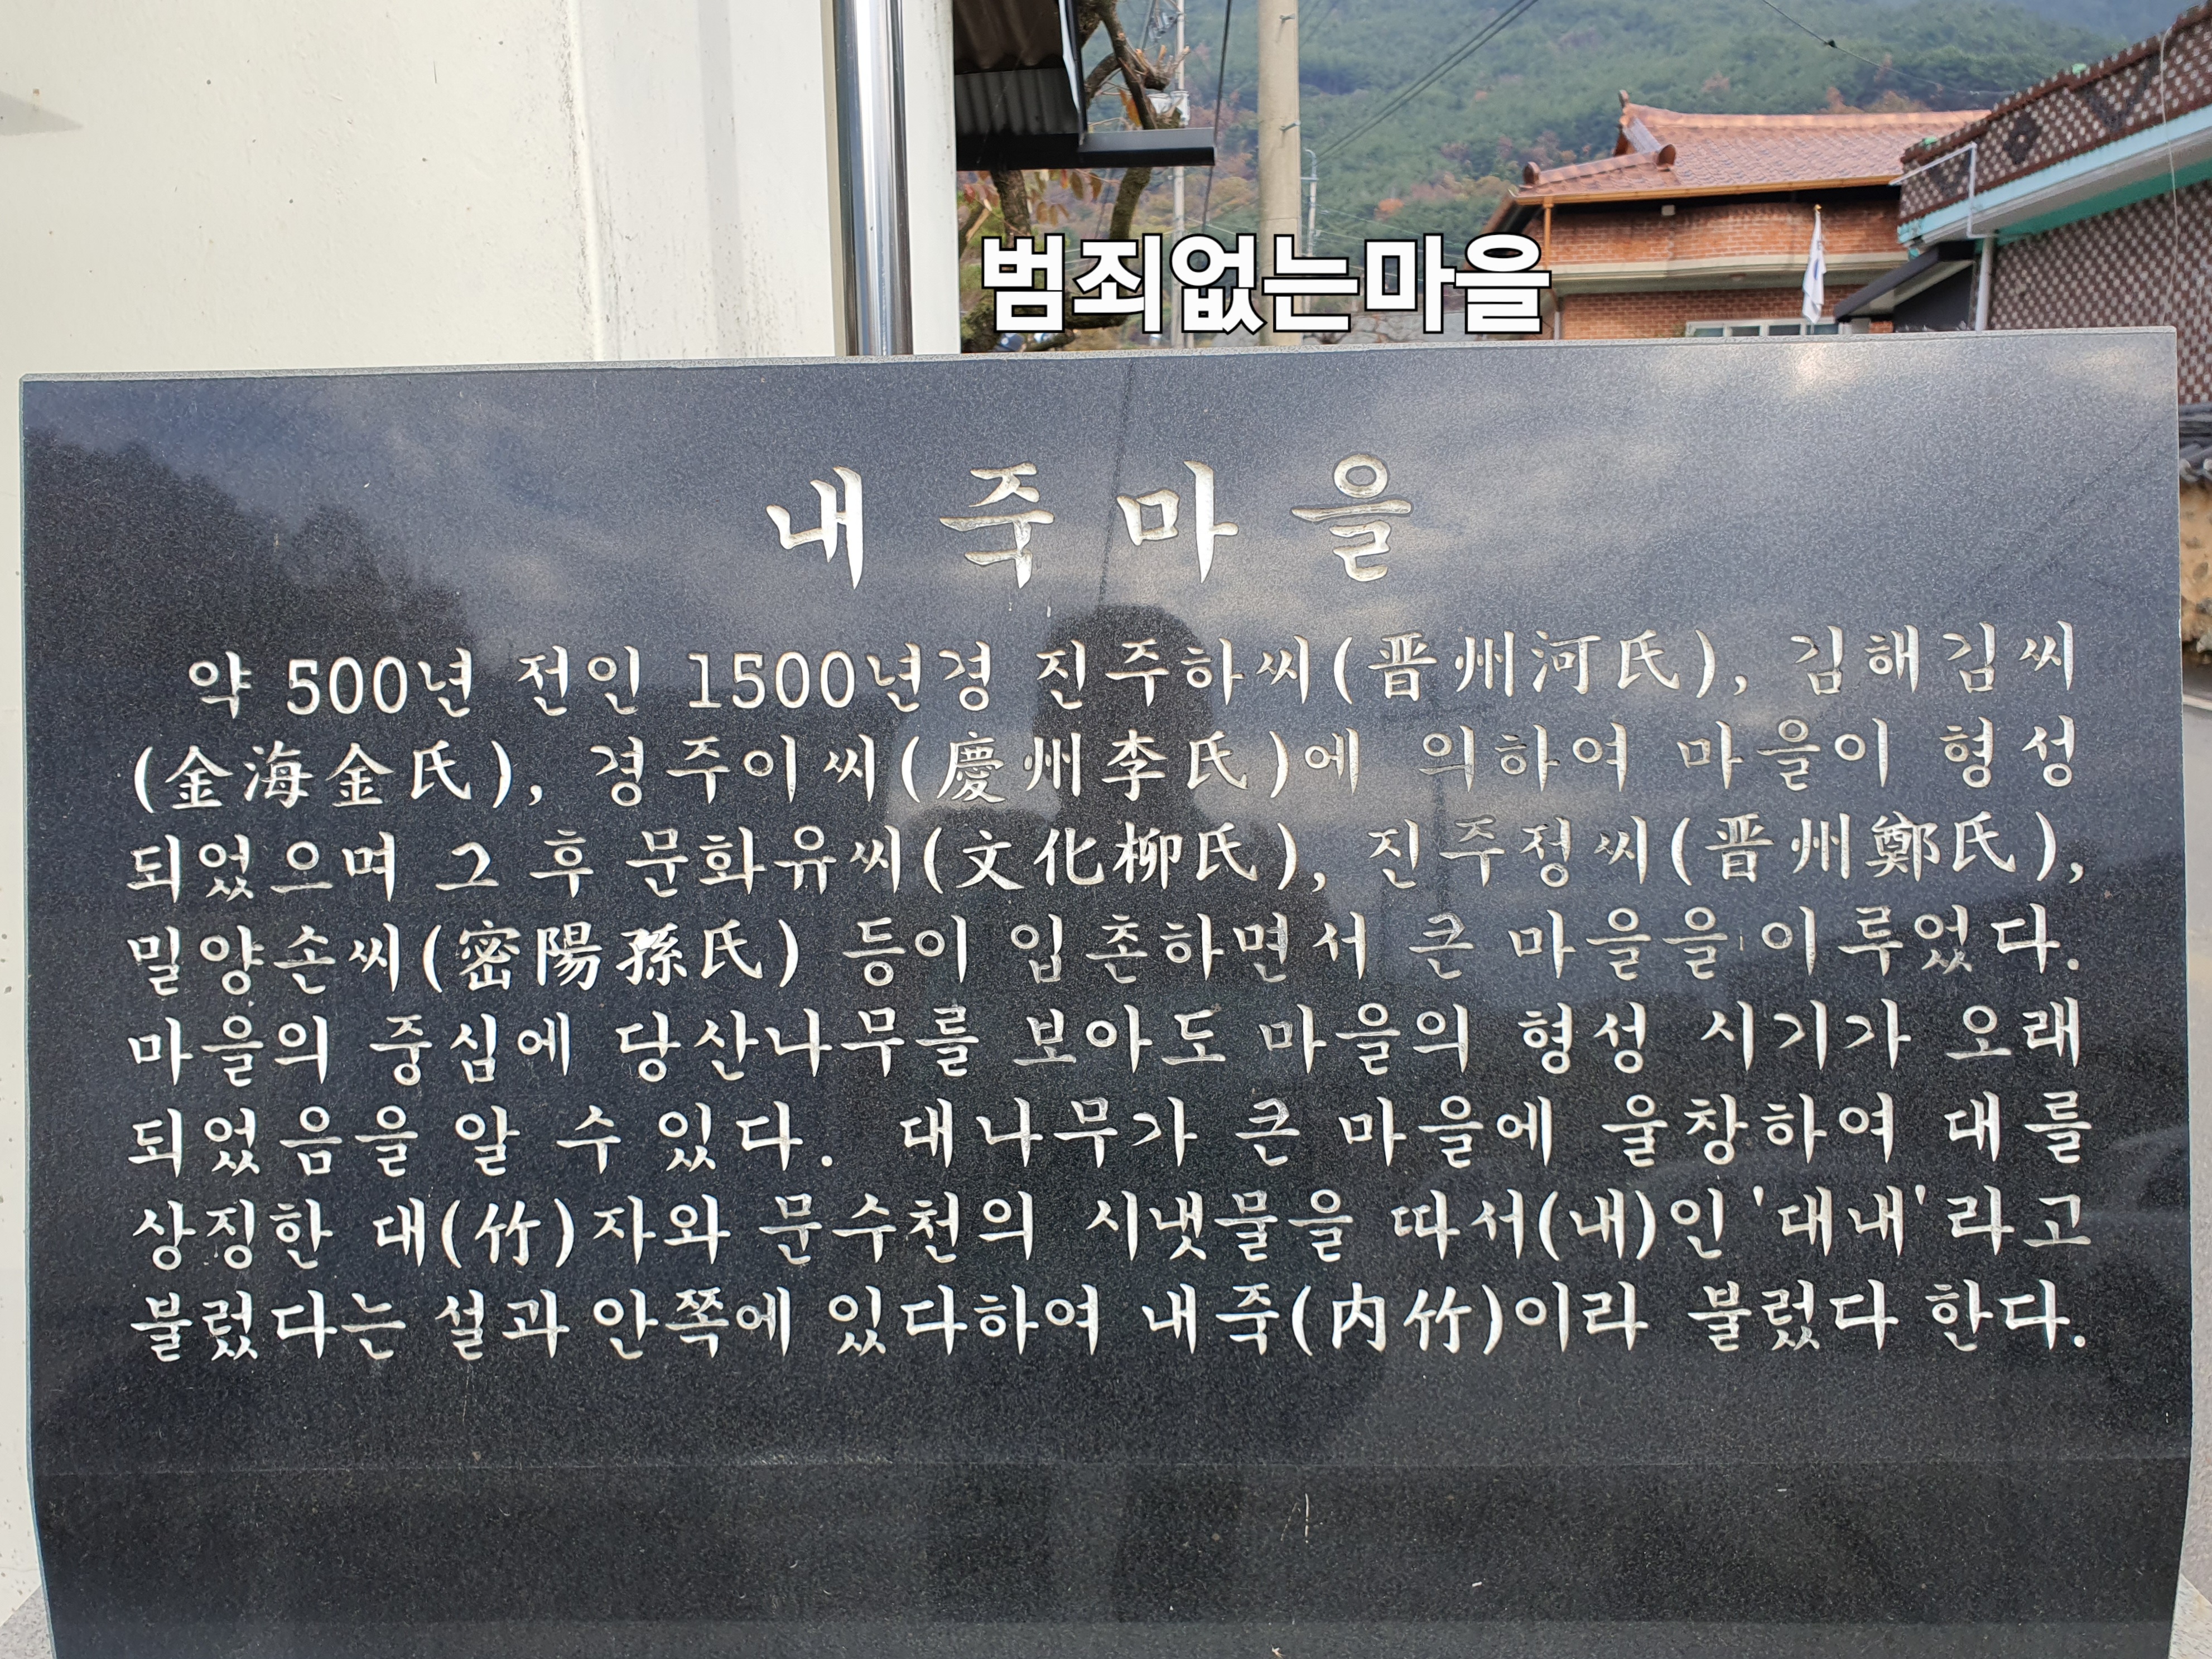 범죄없는마을
내죽마을
약 500년 전인 1500년경 진주하씨(晋州河氏), 김해김씨
(金海金氏), 경주이씨(慶州李氏)에 의하여 마을이 형성
되었으며 그 후 문화유씨(文化柳氏), 진주정씨(晋州鄭氏),
밀양손씨(密陽孫氏) 등이 입촌하면서 큰 마을을 이루었다.
마을의 중심에 당산나무를 보아도 마을의 형성 시기가 오래
되었음을 알 수 있다. 대나무가 큰 마을에 울창하여 대를
상징한 대(竹)자와 문수천의 시냇물을 따서(내)인 '대내'라고
불렀다는 설과 안쪽에 있다하여 내죽(内竹)이라 불렀다 한다.